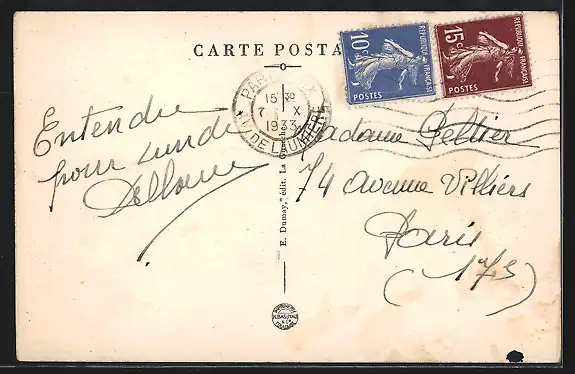 CARTE POSTA
10c
REPUBLIQUE FRANÇAISE
POSTES
15c
REPUBLIQUE FRANÇAISE
POSTES
PARIS
15 30
7 X
1933
AV. DE LAUMIERE
Entendu
pour lundi
E. Dumay, édit. La
Madame Peltier
74 Avenue Villiers
Paris
(17e)